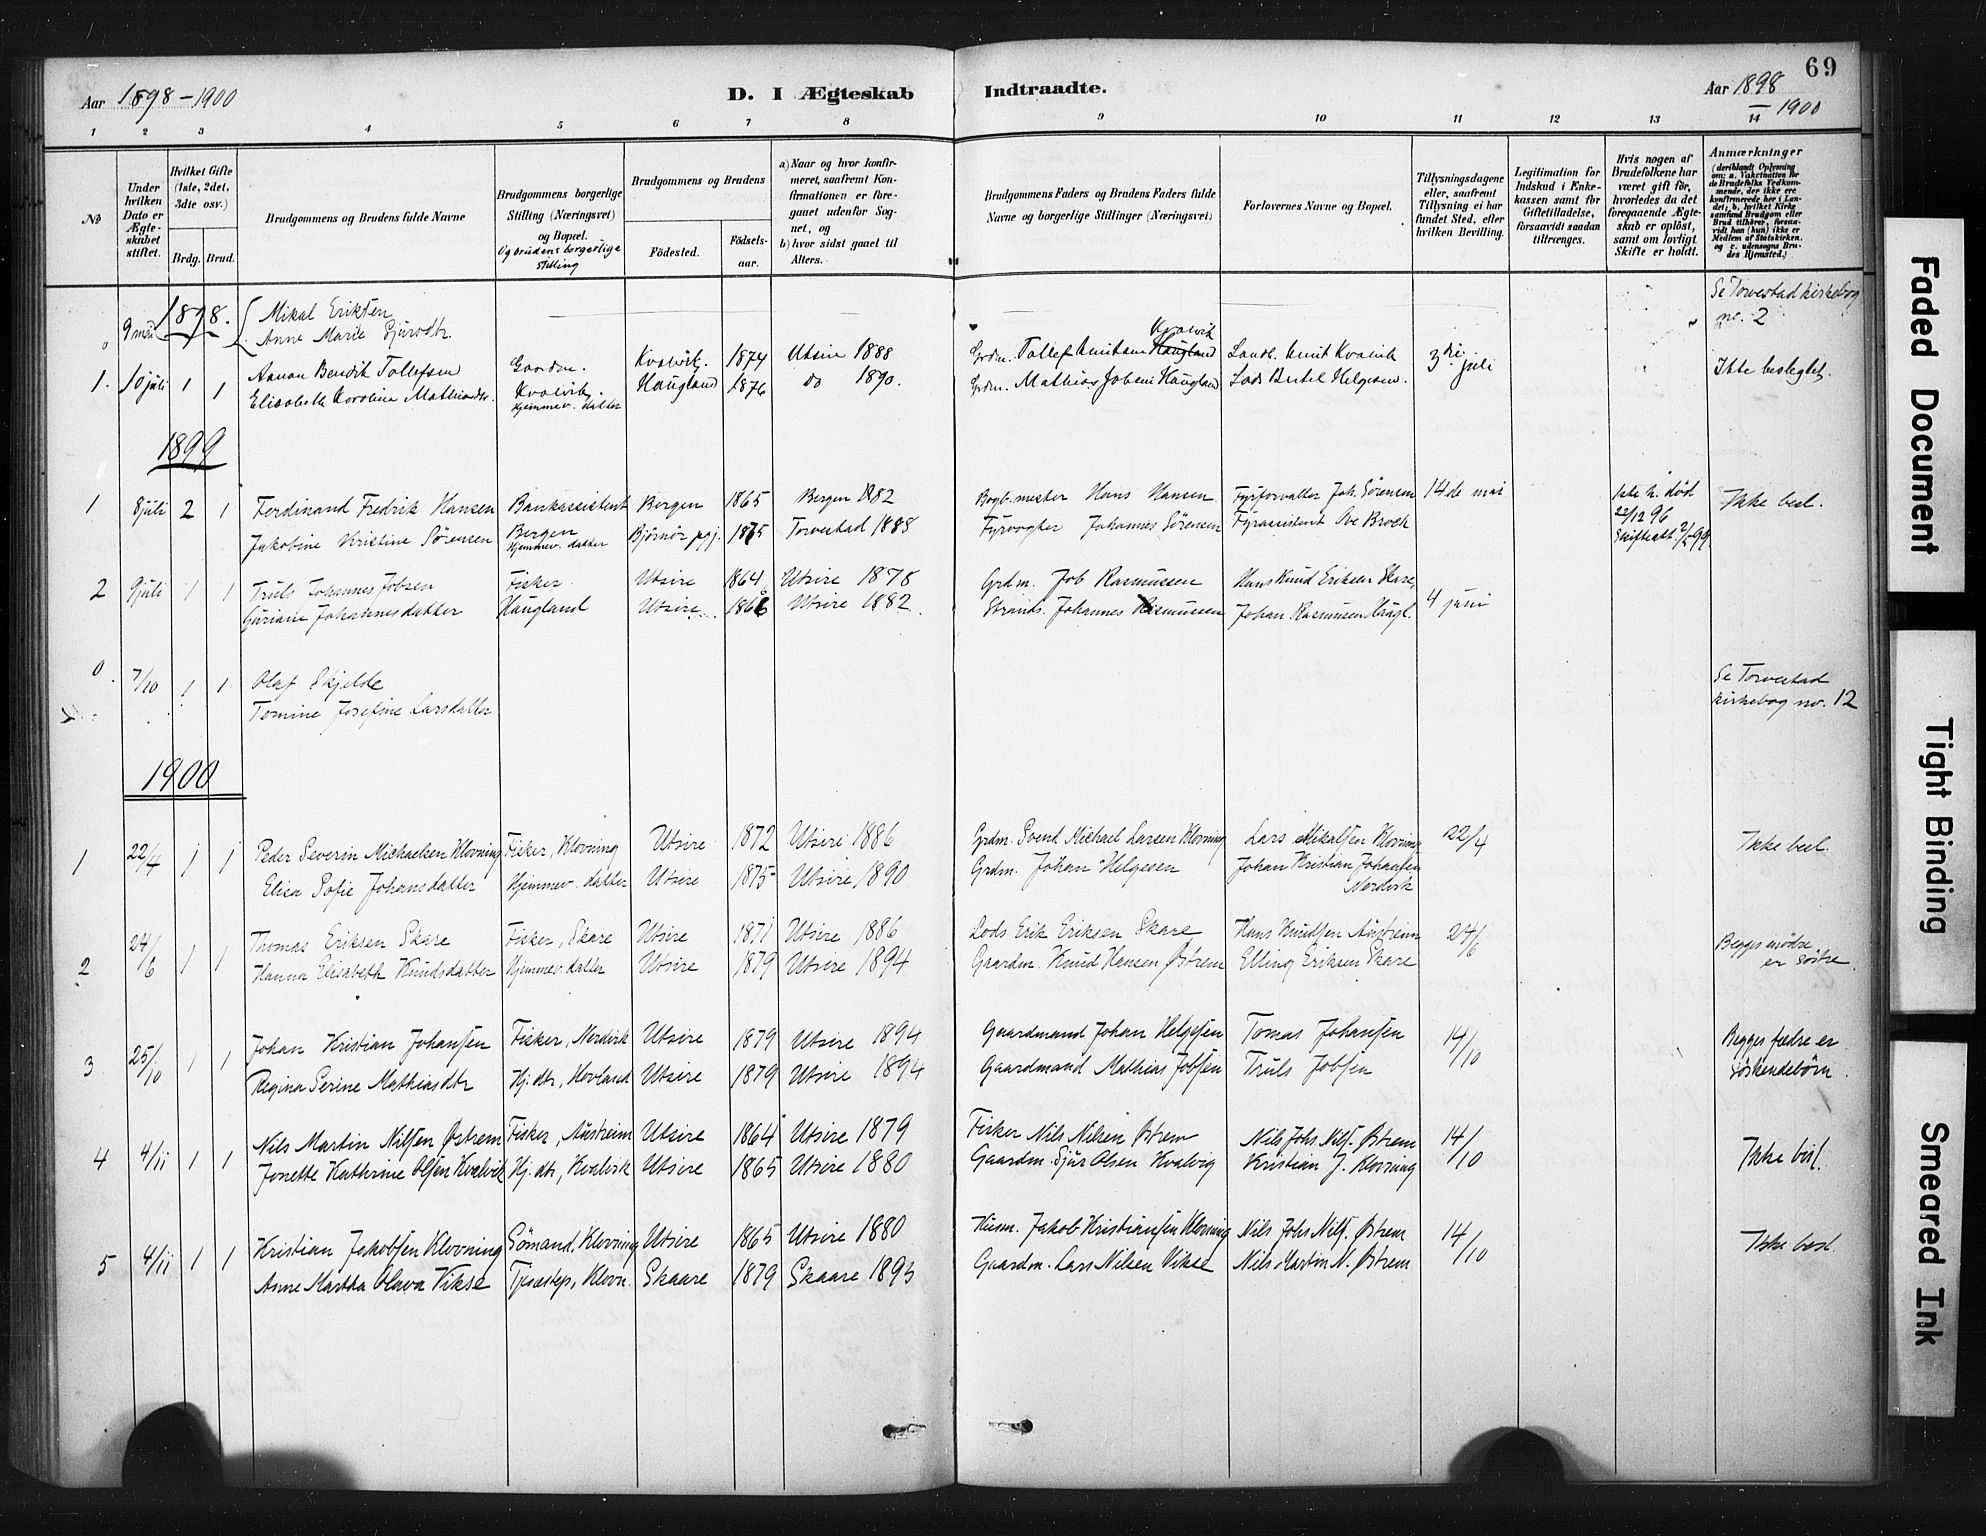 69
Aar 1898-1900
D. I Ægteskab
Indtraadte.
Aar 1898
- 1900
1 2 3 4 5 6 7 8 9 10 11 12 13 14
No
Under hvilken Dato er Ægteskabet stiftet.
Hvilket Gifte (1ste, 2det, 3die osv.)
Brdg. Brud.
Brudgommens og Brudens fulde Navne
Brudgommens borgerlige Stilling (Næringsvei) og Bopæl.
Og brudens borgerlige stilling
Brudgommens og Brudens
Fødested.
Fødselsaar.
a) Naar og hvor konfirmeret, saafremt Konfirmationen er foregaaet udenfor Sognet, og
b) hvor sidst gaaet til Alters.
Brudgommens Faders og Brudens Faders fulde Navne og borgerlige Stillinger (Næringsvei)
Forlovernes Navne og Bopæl.
Tillysningsdagene eller, saafremt Tillysning ei har fundet Sted, efter hvilken Bevilling.
Legitimation for Indskud i Enkekassen samt for Giftetilladelse, forsaavidt saadan tiltrænges.
Hvis nogen af Brudefolkene har været gift før, hvorledes da det foregaaende Ægteskab er opløst, samt om lovligt Skifte er holdt.
Anmærkninger
(deriblandt Oplysning om: a. Vaksination for de Brudefolks Vedkommende, der ikke ere konfirmerede her i Landet; b. hvilket Kirkesamfund Brudgom eller Brud tilhører, forsaavidt han (hun) ikke er Medlem af Statskirken, og c. udensogns Brudes Hjemsted.)
1898.
0 9 mai Mikal Eriksen
Se Torvestad kirkebog
Anne Marie Sjursdtr.
no. 2
1. 10 juli 1 1 Aanon Bendik Tollefsen Gaardm. Kvalvik. 1874 Utsire 1888 Grdm. Tollef Knutsen Haugland Kvalvik Landh. Knut Kvalvik 3die juli Ikke beslegtet.
Elisabeth Karolina Mathiasdtr. Kvalvik. Hjemmev. datter Haugland 1876 do 1890. Grdm. Mathias Jobsen Haugland Lods Bertel Helgesen.
1899
1 8 juli 2 1 Ferdinand Fredrik Hansen Bankassistent Bergen 1865 Bergen 1882 Bogb.mester Hans Hansen Fyrforvalter Joh. Sørensen 14de mai 1ste h. død Ikke besl.
Jakobine Kristine Sørensen Bergen Hjemmev. datter Bjørnør pgj. 1875 Torvestad 1888 Fyrvogter Johannes Sørensen Fyrassistent Ove Broch 22/12 96
Skifteatt. 2/5 99.
2 9 juli 1 1 Truls Johannes Jobsen Fisker Utsire 1864 Utsire 1878 Grdm. Job Rasmussen Hans Knud Eriksen Skare, 4 juni
Guriane Johannesdatter Haugland Utsire 1866 Utsire 1882. Strands. Johannes Rasmussen Johan Rasmusen Haugl.
0. 7/10 1 1 Olaf Skjelde Se Torvestad
Tomine Josefine Larsdatter kirkebog no. 12
1900
1 22/4 1 1 Peder Severin Michaelsen Klovning Fisker, Klovning Utsire 1872 Utsire 1886 Grdm. Svend Michael Larsen Klovning Lars Mikalsen Klovning 22/4 Ikke besl.
Elisa Sofie Johansdatter Hjemmev. datter Utsire 1875 Utsire 1890 Grdm. Johan Helgesen Johan Kristian Johansen
Nordvik
2 24/6 1 1 Thomas Eriksen Skare Fisker, Skare Utsire 1871 Utsire 1886 Lods Erik Eriksen Skare Hans Knudsen Austreim 24/6 Begges mødre
Hanna Elisabeth Knudsdatter Hjemmev. datter Utsire 1879 Utsire 1894 Gaardm. Knud Hansen Østrem Elling Eriksen Skare er søstre.
3 25/10 1 1 Johan Kristian Johansen Fisker, Nordvik Utsire 1879 Utsire 1894 Gaardmand Johan Helgesen Tomas Johansen 14/10 Begges fædre er
Regina Serine Mathiasdtr Hj. dtr, Hovland Utsire 1879 Utsire 1894 Gaardmand Mathias Jobsen Truls Jobsen søskendebørn.
4 4/11 1 1 Nils Martin Nilsen Østrem Fisker, Austreim Utsire 1864 Utsire 1879 Fisker Nils Nilsen Østrem Nils Johs Nils. Østrem 14/10 Ikke besl.
Jonette Kathrine Olsen Kvalvik Hj. dtr, Kvalvik Utsire 1865 Utsire 1880 Gaardm. Sjur Olsen Kvalvig Kristian J. Klovning
5 4/11 1 1 Kristian Jakobsen Klovning Sømand, Klovning Utsire 1865 Utsire 1880 Husm. Jakob Kristiansen Klovning Nils Johs Nils. Østrem 14/10 Ikke besl.
Anne Martha Olava Vikse Tjenestep., Klovn. Skaare 1879 Skaare 1893 Gaardm. Lars Nilsen Vikse Nils Martin N. Østrem
Faded Document
Tight Binding
Smeared Ink